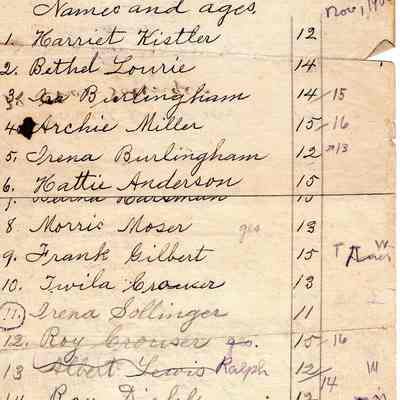 Names and ages. Nov. 1,
1. Harriet Kistler 12
2. Bethel Lourie 14
3. Burlingham 14 15
4. Archie Miller 15 16
5. Irena Burlingham 12 13
6. Hattie Anderson 15
15
8 Morris Moser yes 13
9. Frank Gilbert 15 T
10. Twila Crouser 13
11. Irena Sollinger 11
12. Roy Crouser yes. 15 16
13 Albert Lewis Ralph 12/14
14 Roy